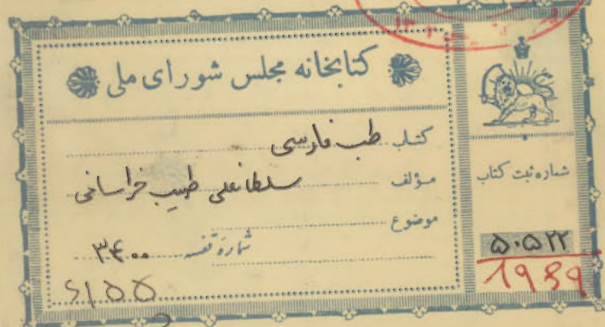 کتابخانه مجلس شورای ملی
کتاب طب فارسی
مؤلف سلطانعلی طبیب خراسانی
موضوع
شمارهٔ قفسه ۳۴۰۰
5155
شماره ثبت کتاب
۵۰۵۲۲
1989